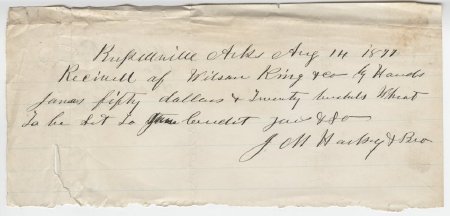 Russellville Arks Aug 14 1877
Recieved of Wilson King & co By Hands
Jones fifty dollars & Twenty bushels Wheat
To be Set to your Credit
J M Harkey & Bro